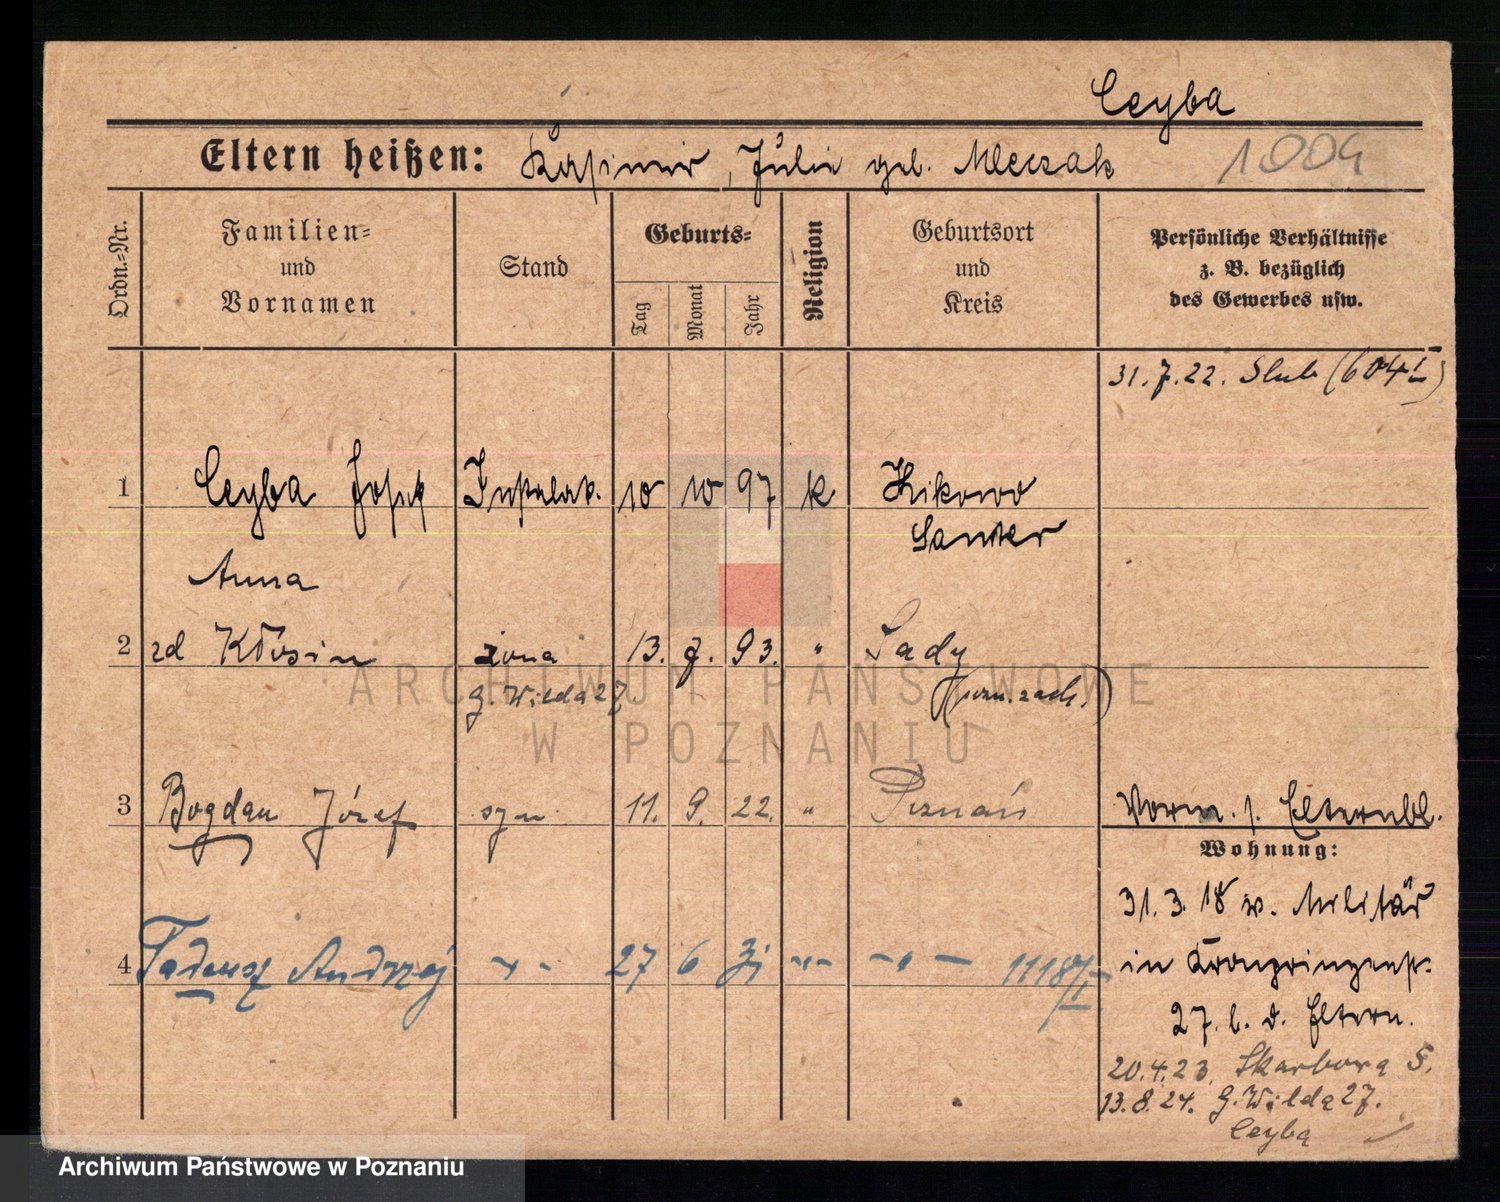 Ceyba
Eltern heißen: Kasimir, Julie geb. Mleczak 1004
Ordn.-Nr.
Familien-
und
Vornamen
Stand
Geburts-
Tag
Monat
Jahr
Religion
Geburtsort
und
Kreis
Persönliche Verhältnisse
z. B. bezüglich
des Gewerbes usw.
31.7.22. Slub (604 I)
1 Ceyba Josef Installat. 10 10 97 k Kikowo
Samter
Anna
2 zd Kłosin żona 13. 7. 93. " Sady
G. Wilda 27 (pozn. zach.)
3 Bogdan Józef syn 11. 9. 22. " Poznań
Vorm. s. Elternbl.
Wohnung:
31.3.18 v. Militär
in Kronprinzenst.
4 Tadeusz Andrzej -"- 27 6 31 -"- -"- 1118/I
27. b. d. Eltern.
20.4.23. Skarbowa 5.
13.8.24. G. Wilda 27.
Ceyba
ARCHIWUM PAŃSTWOWE
W POZNANIU
Archiwum Państwowe w Poznaniu